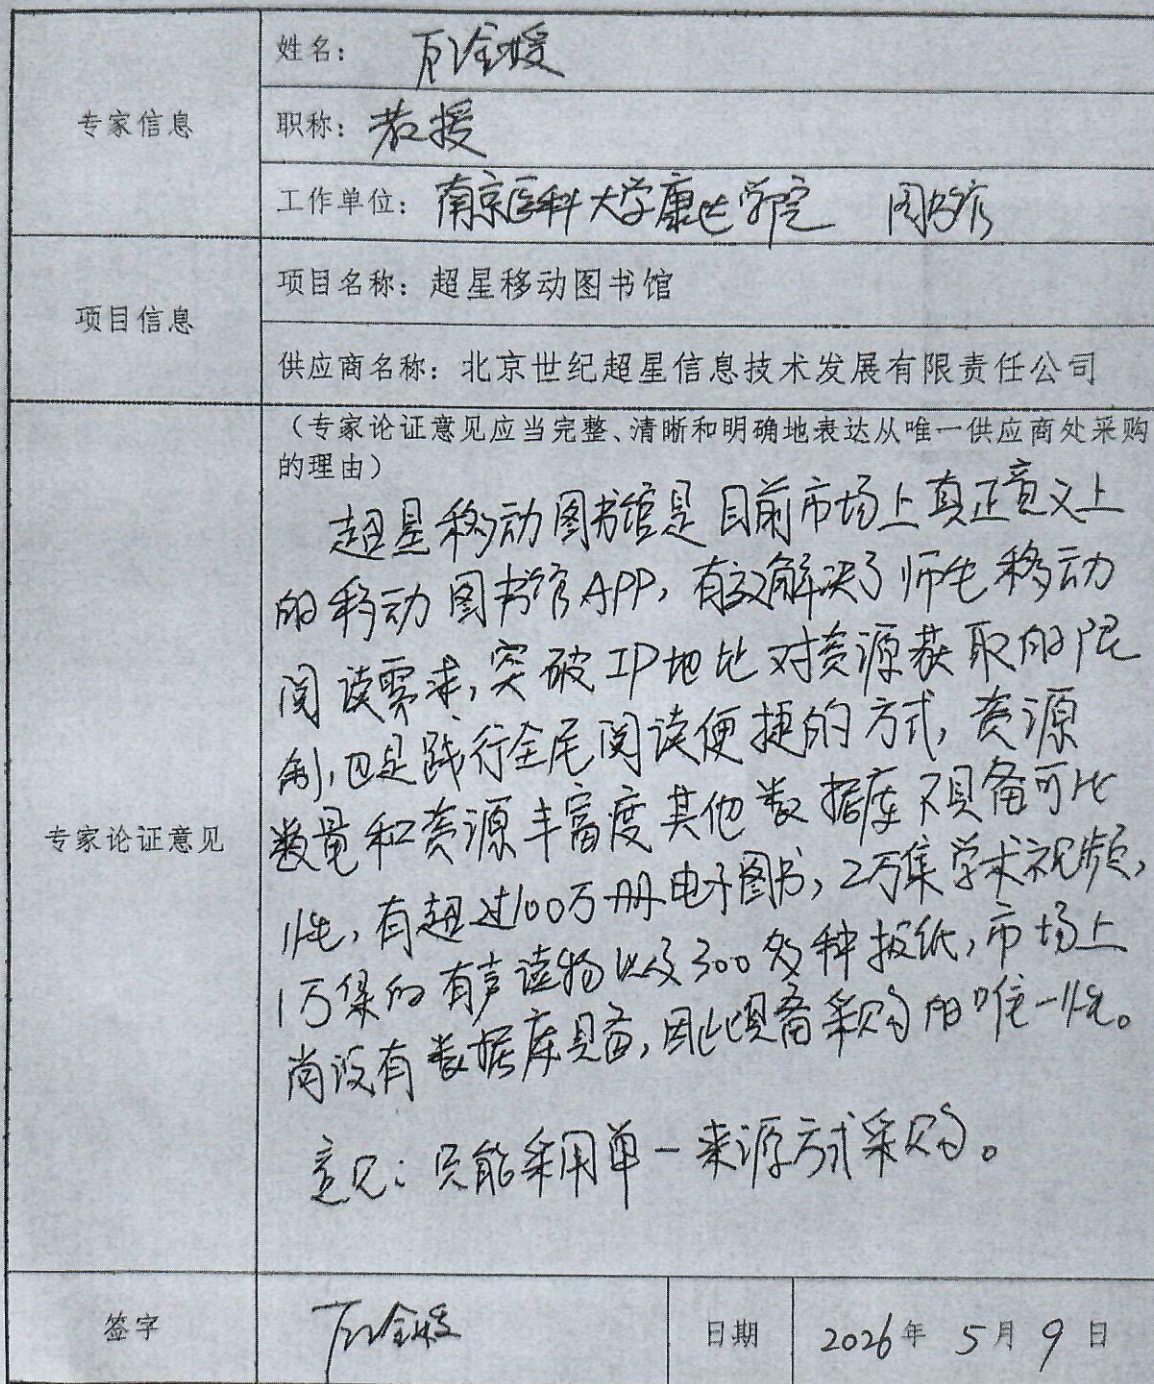 专家信息
姓名：
职称：教授
工作单位：南京医科大学康达学院 图书馆
项目信息
项目名称：超星移动图书馆
供应商名称：北京世纪超星信息技术发展有限责任公司
专家论证意见
（专家论证意见应当完整、清晰和明确地表达从唯一供应商处采购
的理由）
超星移动图书馆是目前市场上真正意义上
的移动图书馆APP，有效解决了师生移动
阅读需求，突破IP地址对资源获取的限
制，也是践行全民阅读便捷的方式，资源
数量和资源丰富度其他数据库不具备可比
性，有超过100万册电子图书，2万集学术视频，
1万集的有声读物以及300多种报纸，市场上
尚没有数据库具备，因此具备采购的唯一性。
意见：只能采用单一来源方式采购。
签字
日期
2026年 5月 9日